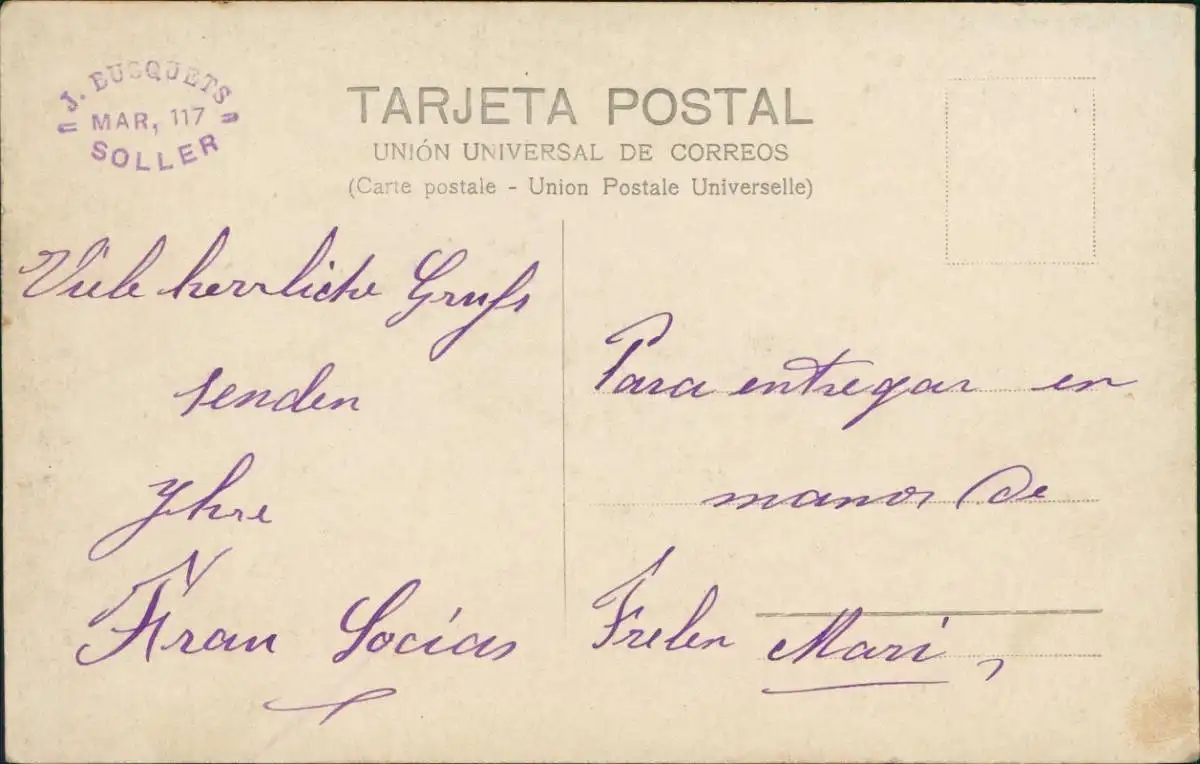 J. BUSQUETS
MAR, 117
SOLLER
TARJETA POSTAL
UNIÓN UNIVERSAL DE CORREOS
(Carte postale - Union Postale Universelle)
Viele herrliche Grufs
senden
Yhre
Frau Socías
Para entregar en
manos de
Frelen Mari,